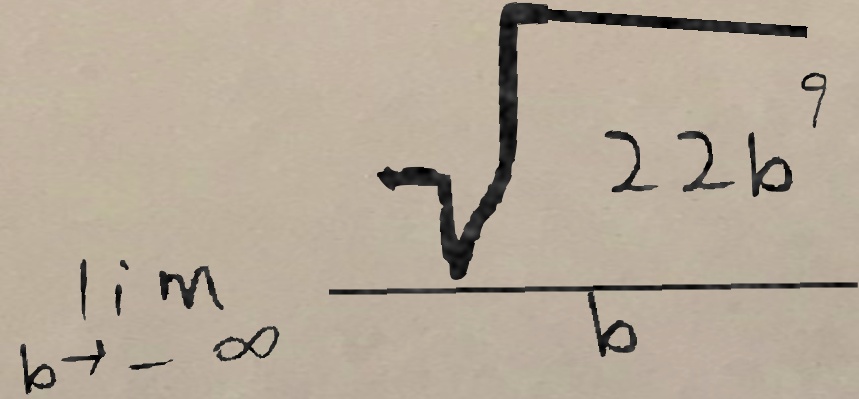 lim b→-∞ √(22b⁹) / b